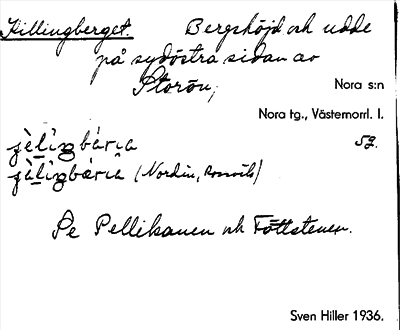 Killingberget. Bergshöjd och udde
på sydöstra sidan av
Storön,
Nora s:n
Nora tg., Västernorrl. l.
jèlìŋbárıa 59.
jìlìŋbæ̀rıa (Nordin, Rossvik)
Se Pellikanen och Föttstenen.
Sven Hiller 1936.